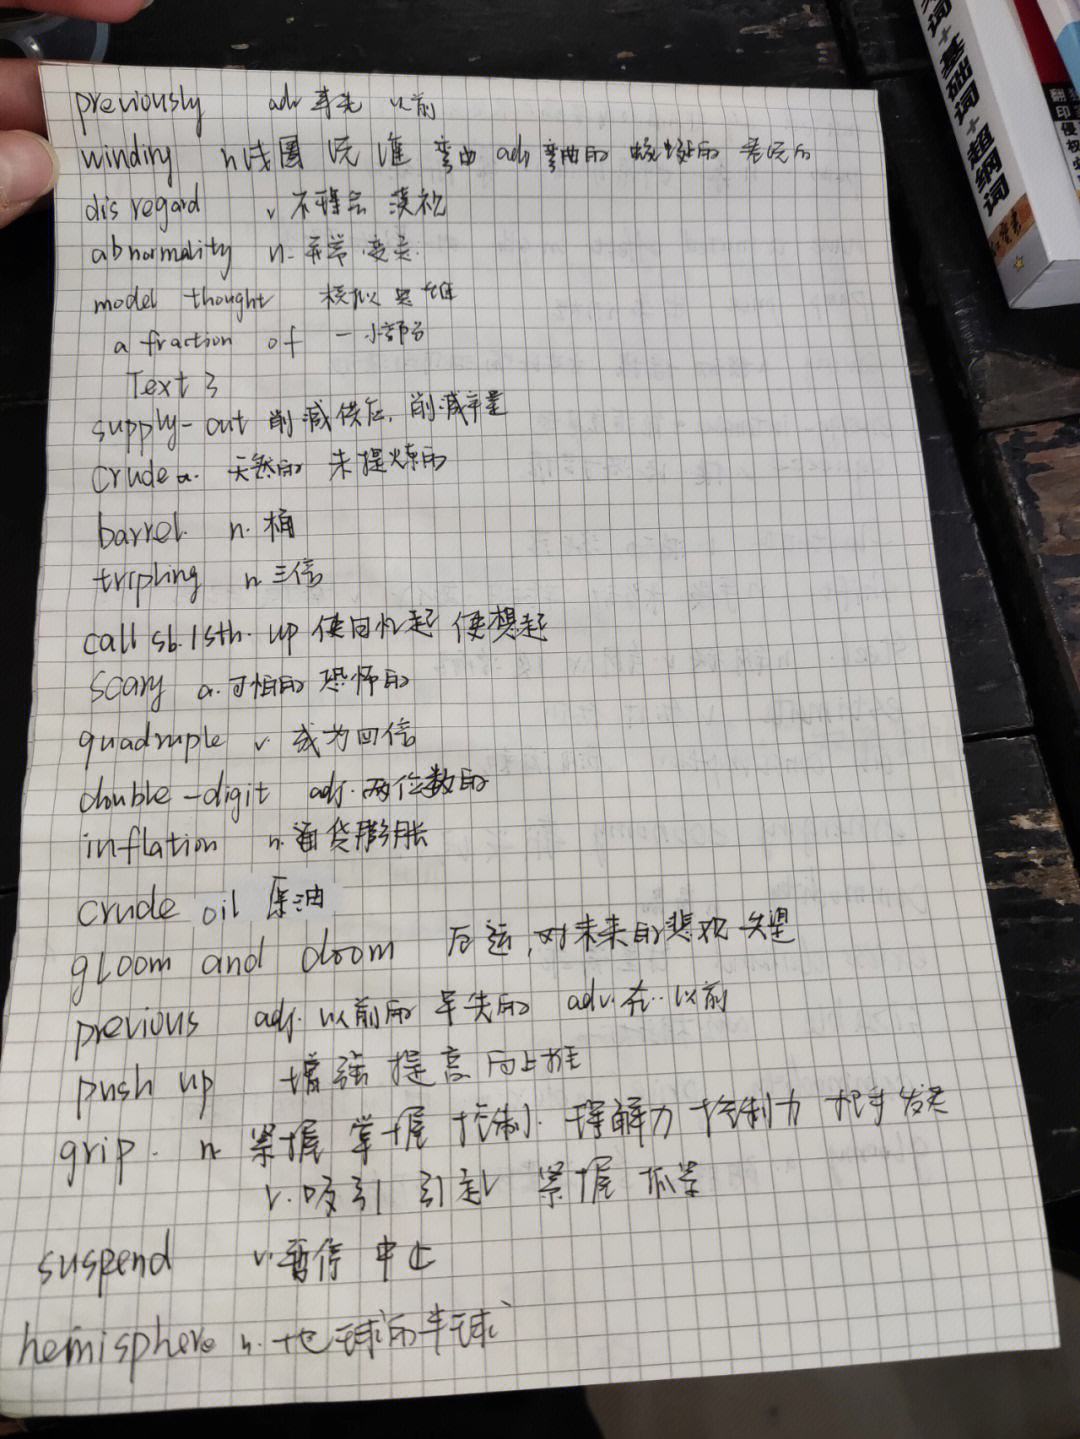 previously adv 事先 以前
winding n 线圈 弯曲 adj 弯曲的 蜿蜒的
disregard v 不理会 漠视
abnormality n. 异常 变态
model thought 模拟思维
a fraction of 一小部分
Text 3
supply-out 削减供应, 削减产量
crude a. 天然的 未提炼的
barrel. n. 桶
tripling n 三倍
call sb. / sth. up 使回忆起 使想起
scary a. 可怕的 恐怖的
quadruple v 成为四倍
double-digit adj. 两位数的
inflation n. 通货膨胀
crude oil 原油
gloom and doom 厄运, 对未来的悲观失望
previous adj. 以前的 早先的 adv. 在…以前
push up 增强 提高 向上推
grip. n 紧握 掌握 控制. 理解力 控制力 把手
v. 吸引 引起 紧握 抓紧
suspend v. 暂停 中止
hemisphere n. 地球的半球
基础词+超纲词
红宝书